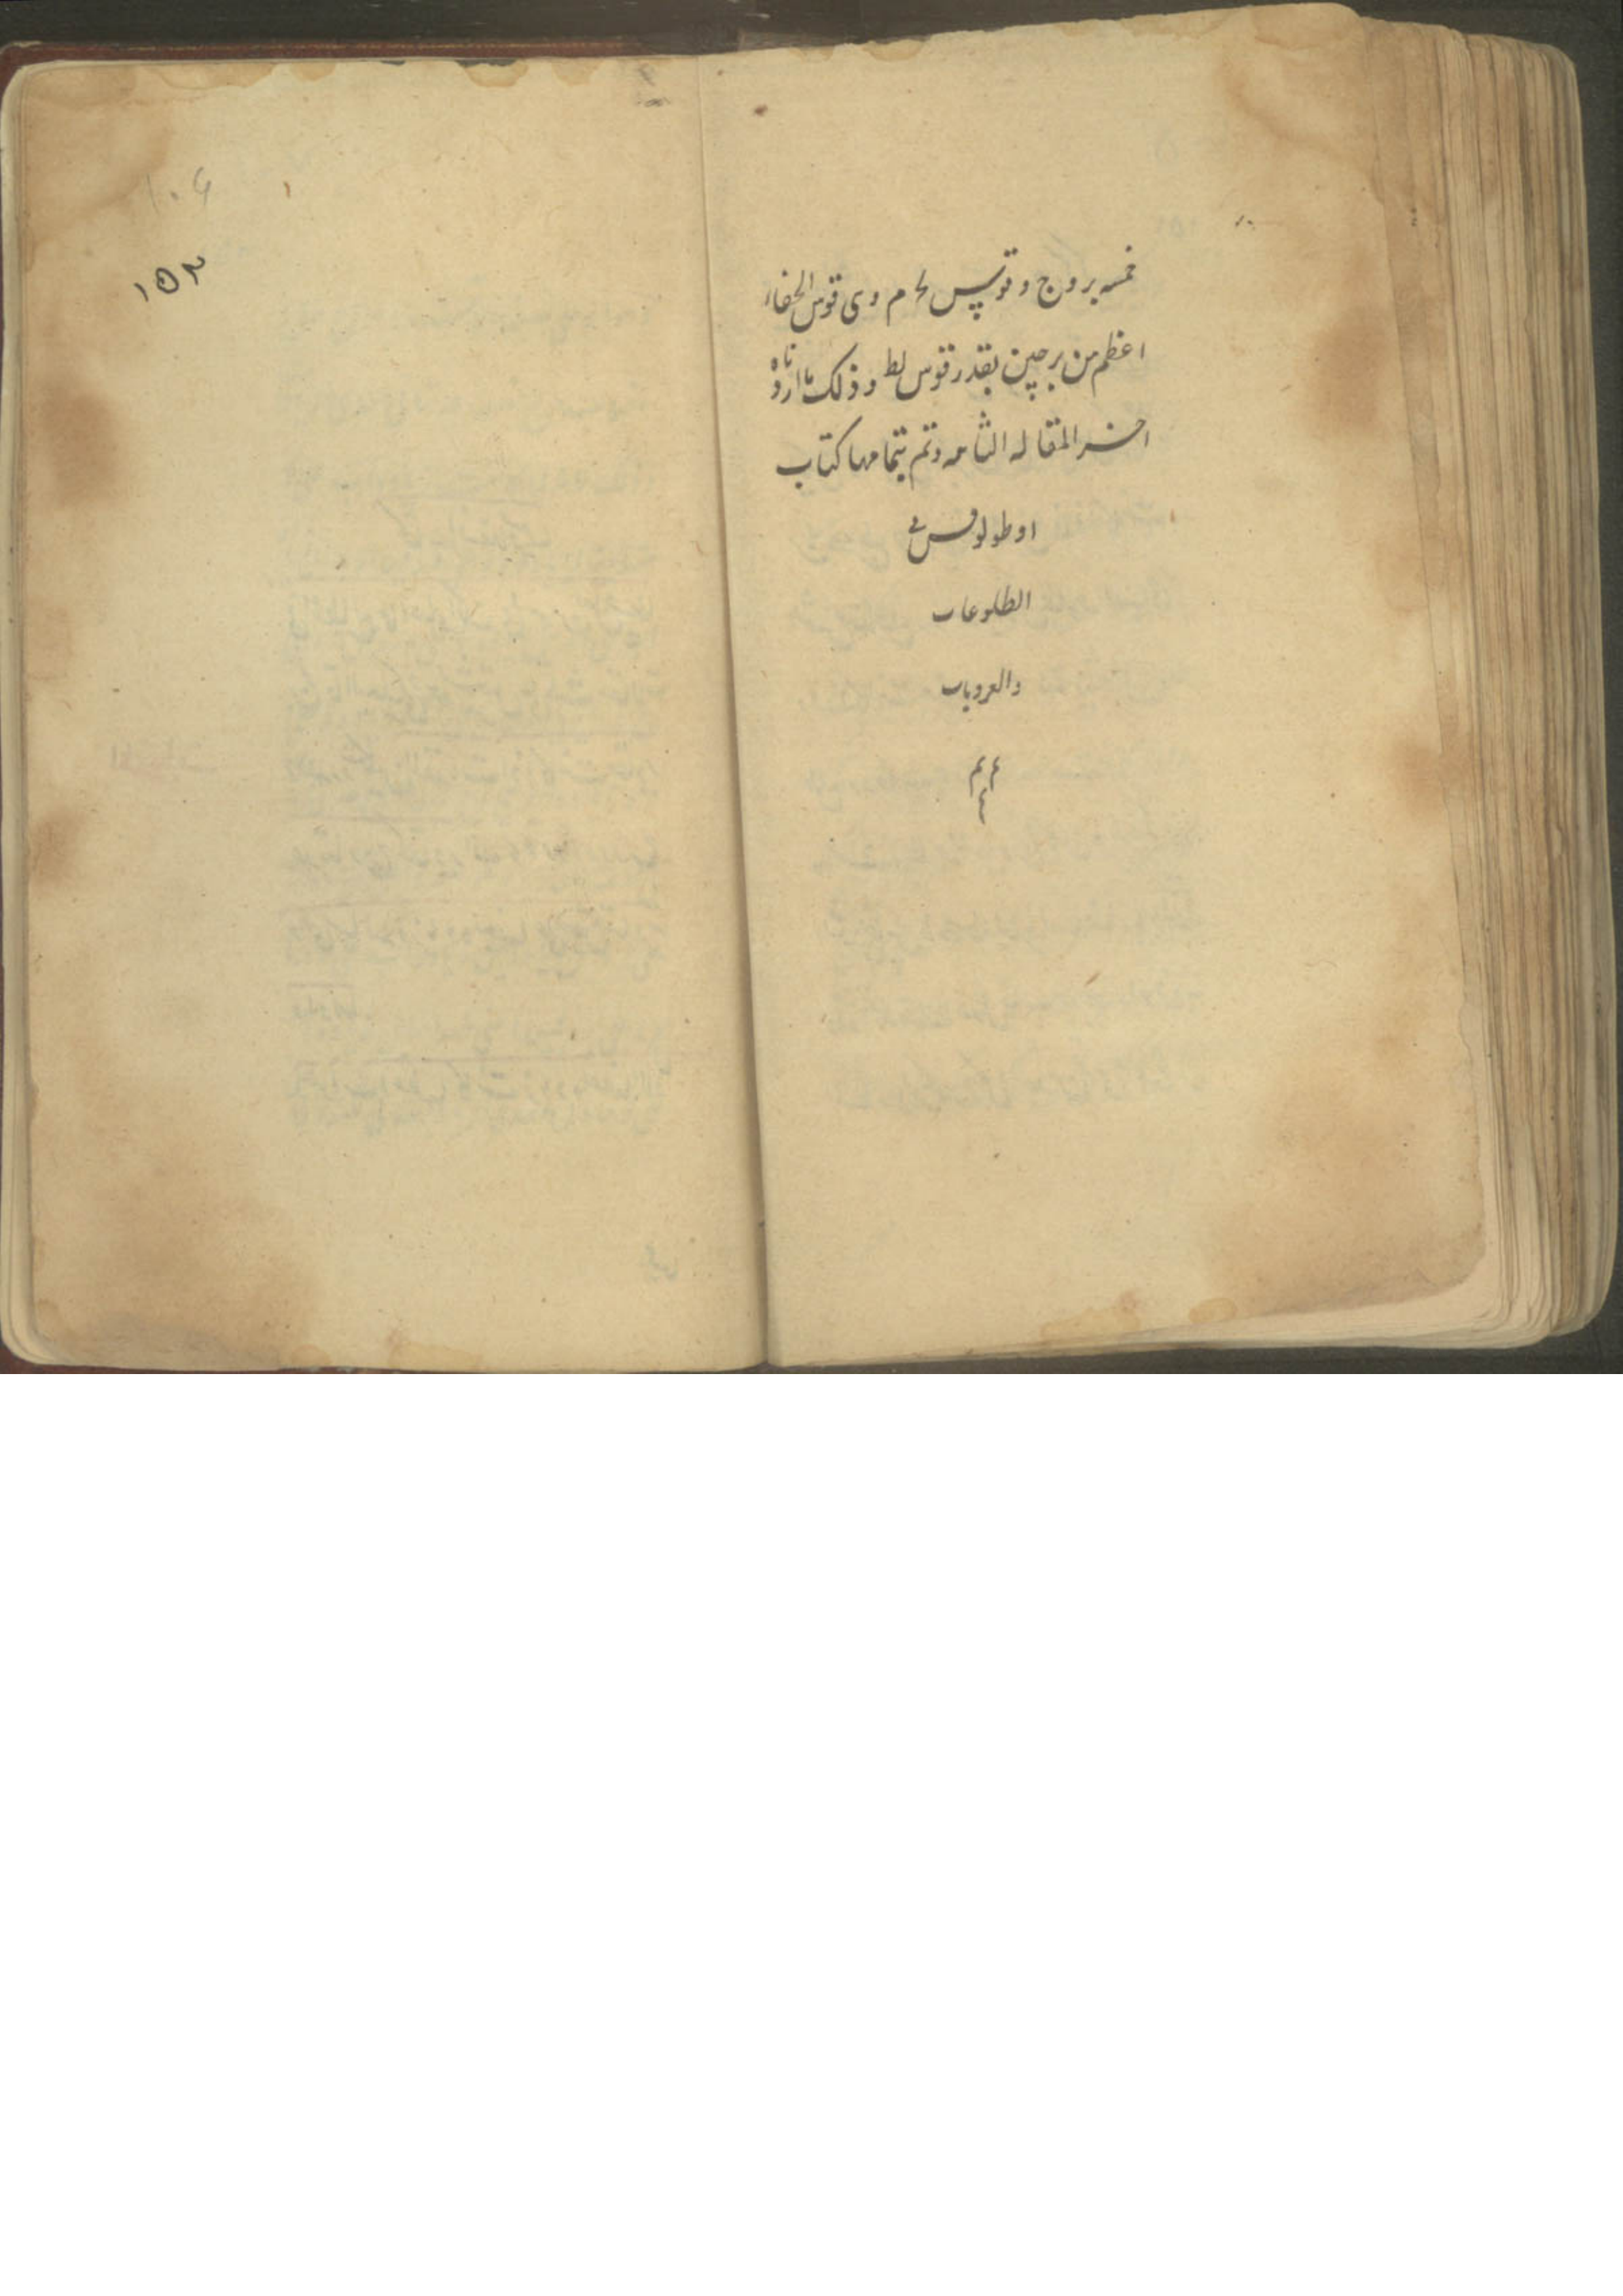 خمسه بروج وقوس لح م وهى قوس الخفاا
اعظم من برجين بقدر قوس لط وذلك ما اردناه
اخر المقاله الثانيه وتم بتمامها كتاب
اوطولوقس فى
الطلوعات
والغروبات
١٥٢